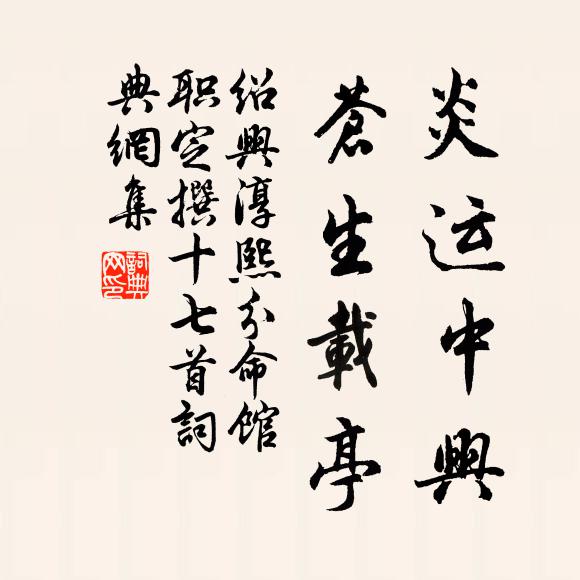 炎运中興
蒼生載亭
紹興淳熙分命馆
职定撰十七首詞
典網集
詞典網印